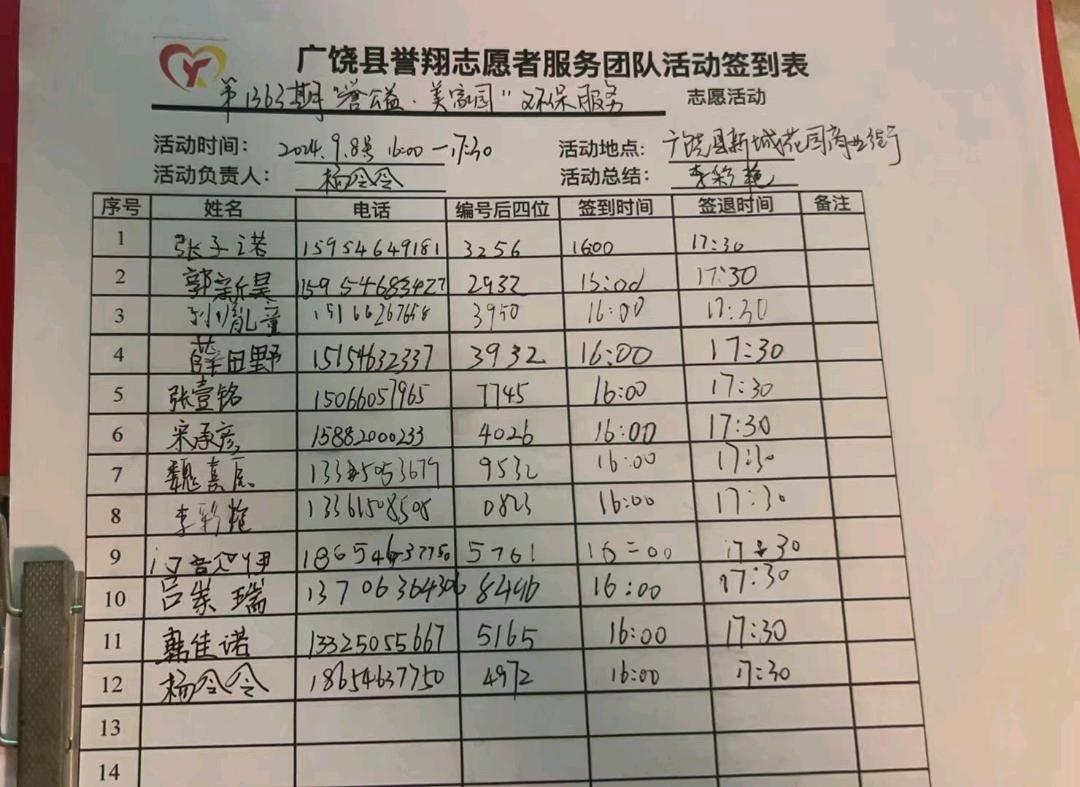 广饶县誉翔志愿者服务团队活动签到表
第1363期"誉公益·美家园"环保服务 志愿活动
活动时间: 2024.9.8号 16:00—17:30 活动地点: 广饶县新城花园商业街
活动负责人: 杨令令 活动总结: 李彩艳
序号 姓名 电话 编号后四位 签到时间 签退时间 备注
1 张子诺 15954649181 3256 16:00 17:30
2 郭新昊 15954683427 2932 15:00 17:30
3 3950 16:00 17:30
4 薛田野 15154632337 3932 16:00 17:30
5 张壹铭 15066057965 7745 16:00 17:30
6 宋承彦 15882000233 4026 16:00 17:30
7 魏喜辰 9532 16:00 17:30
8 李彩艳 13361508508 0823 16:00 17:30
9 18654637750 5761 16:00 17:30
10 吕紫瑞 13706364306 8496 16:00 17:30
11 韩佳诺 13325055667 5165 16:00 17:30
12 杨令令 18654637750 4972 16:00 17:30
13
14